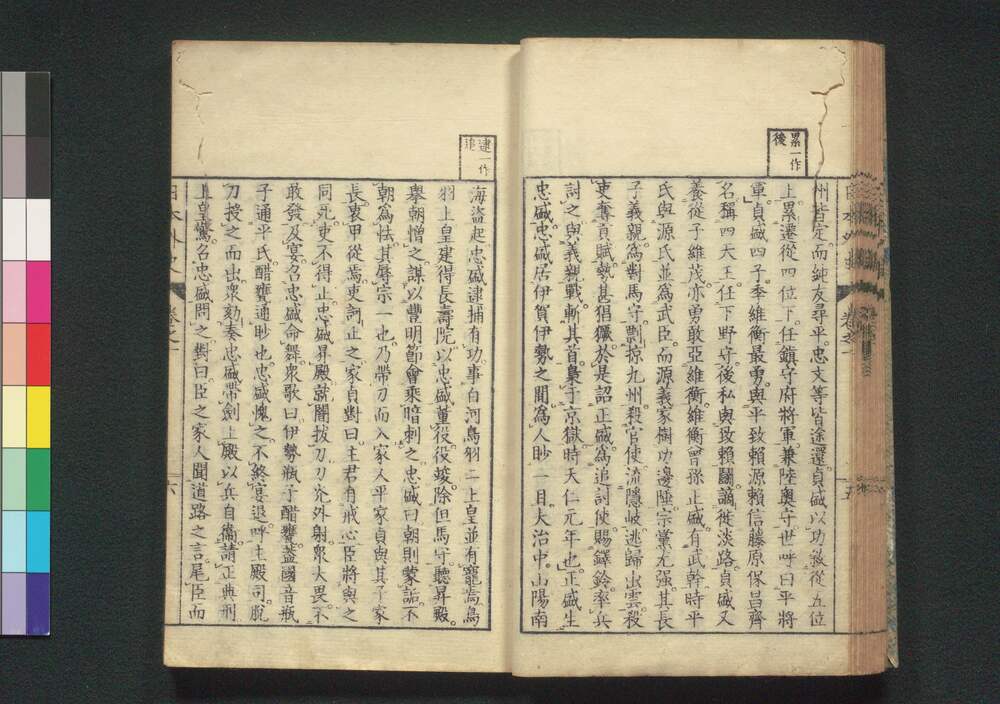 累一作
後
州皆定。而純友尋平。忠文等皆途還。貞盛以功敘從五位
上。累遷從四位下。任鎮守府將軍。兼陸奥守。世呼曰平將
軍。貞盛四子。季維衡最勇。與平致賴源賴信藤原保昌齊
名。稱四天王。任下野守。後私與致賴鬪。謫徙淡路。貞盛又
養從子維茂。亦勇敢亞維衡。維衡曾孫正盛。有武幹。時平
氏與源氏並爲武臣。而源義家樹功邊陲。宗黨尤强。其長
子義親。爲對馬守。剽掠九州。殺官使。流隱岐。逃歸出雲。殺
吏奪貢賦。勢甚猖獗。於是詔正盛。爲追討使。賜鐸鈴。率兵
討之。與義親戰。斬其首。梟于京獄。時天仁元年也。正盛生
忠盛。忠盛居伊賀伊勢之間。爲人眇一目。大治中。山陽南
日本外史 卷之一 五
逮一作
追
海盜起。忠盛逮捕有功。事白河鳥羽二上皇。並有寵焉。鳥
羽上皇建得長壽院。以忠盛董役。役竣。除但馬守。聽昇殿。
擧朝憎之。謀以豐明節會乘暗刺之。忠盛曰。朝則蒙詬。不
朝爲怯。其辱宗一也。乃帶刀而入。家人平家貞與其子家
長。衷甲從焉。吏訶止之。家貞對曰。主君有戒心。臣將與之
同死。吏不得止。忠盛昇殿。就闇拔刀。刀光外射。衆大畏。不
敢發。及宴。召忠盛命舞。衆歌曰。伊勢瓶子醋甕。蓋國音瓶
子通平氏。醋甕通眇也。忠盛愧之。不終宴退。呼主殿司。脫
刀授之而出。衆劾奏忠盛帶劍上殿。以兵自衞。請正典刑。
上皇驚。召忠盛問之。對曰。臣之家人聞道路之言。尾臣而
日本外史 卷之一 六